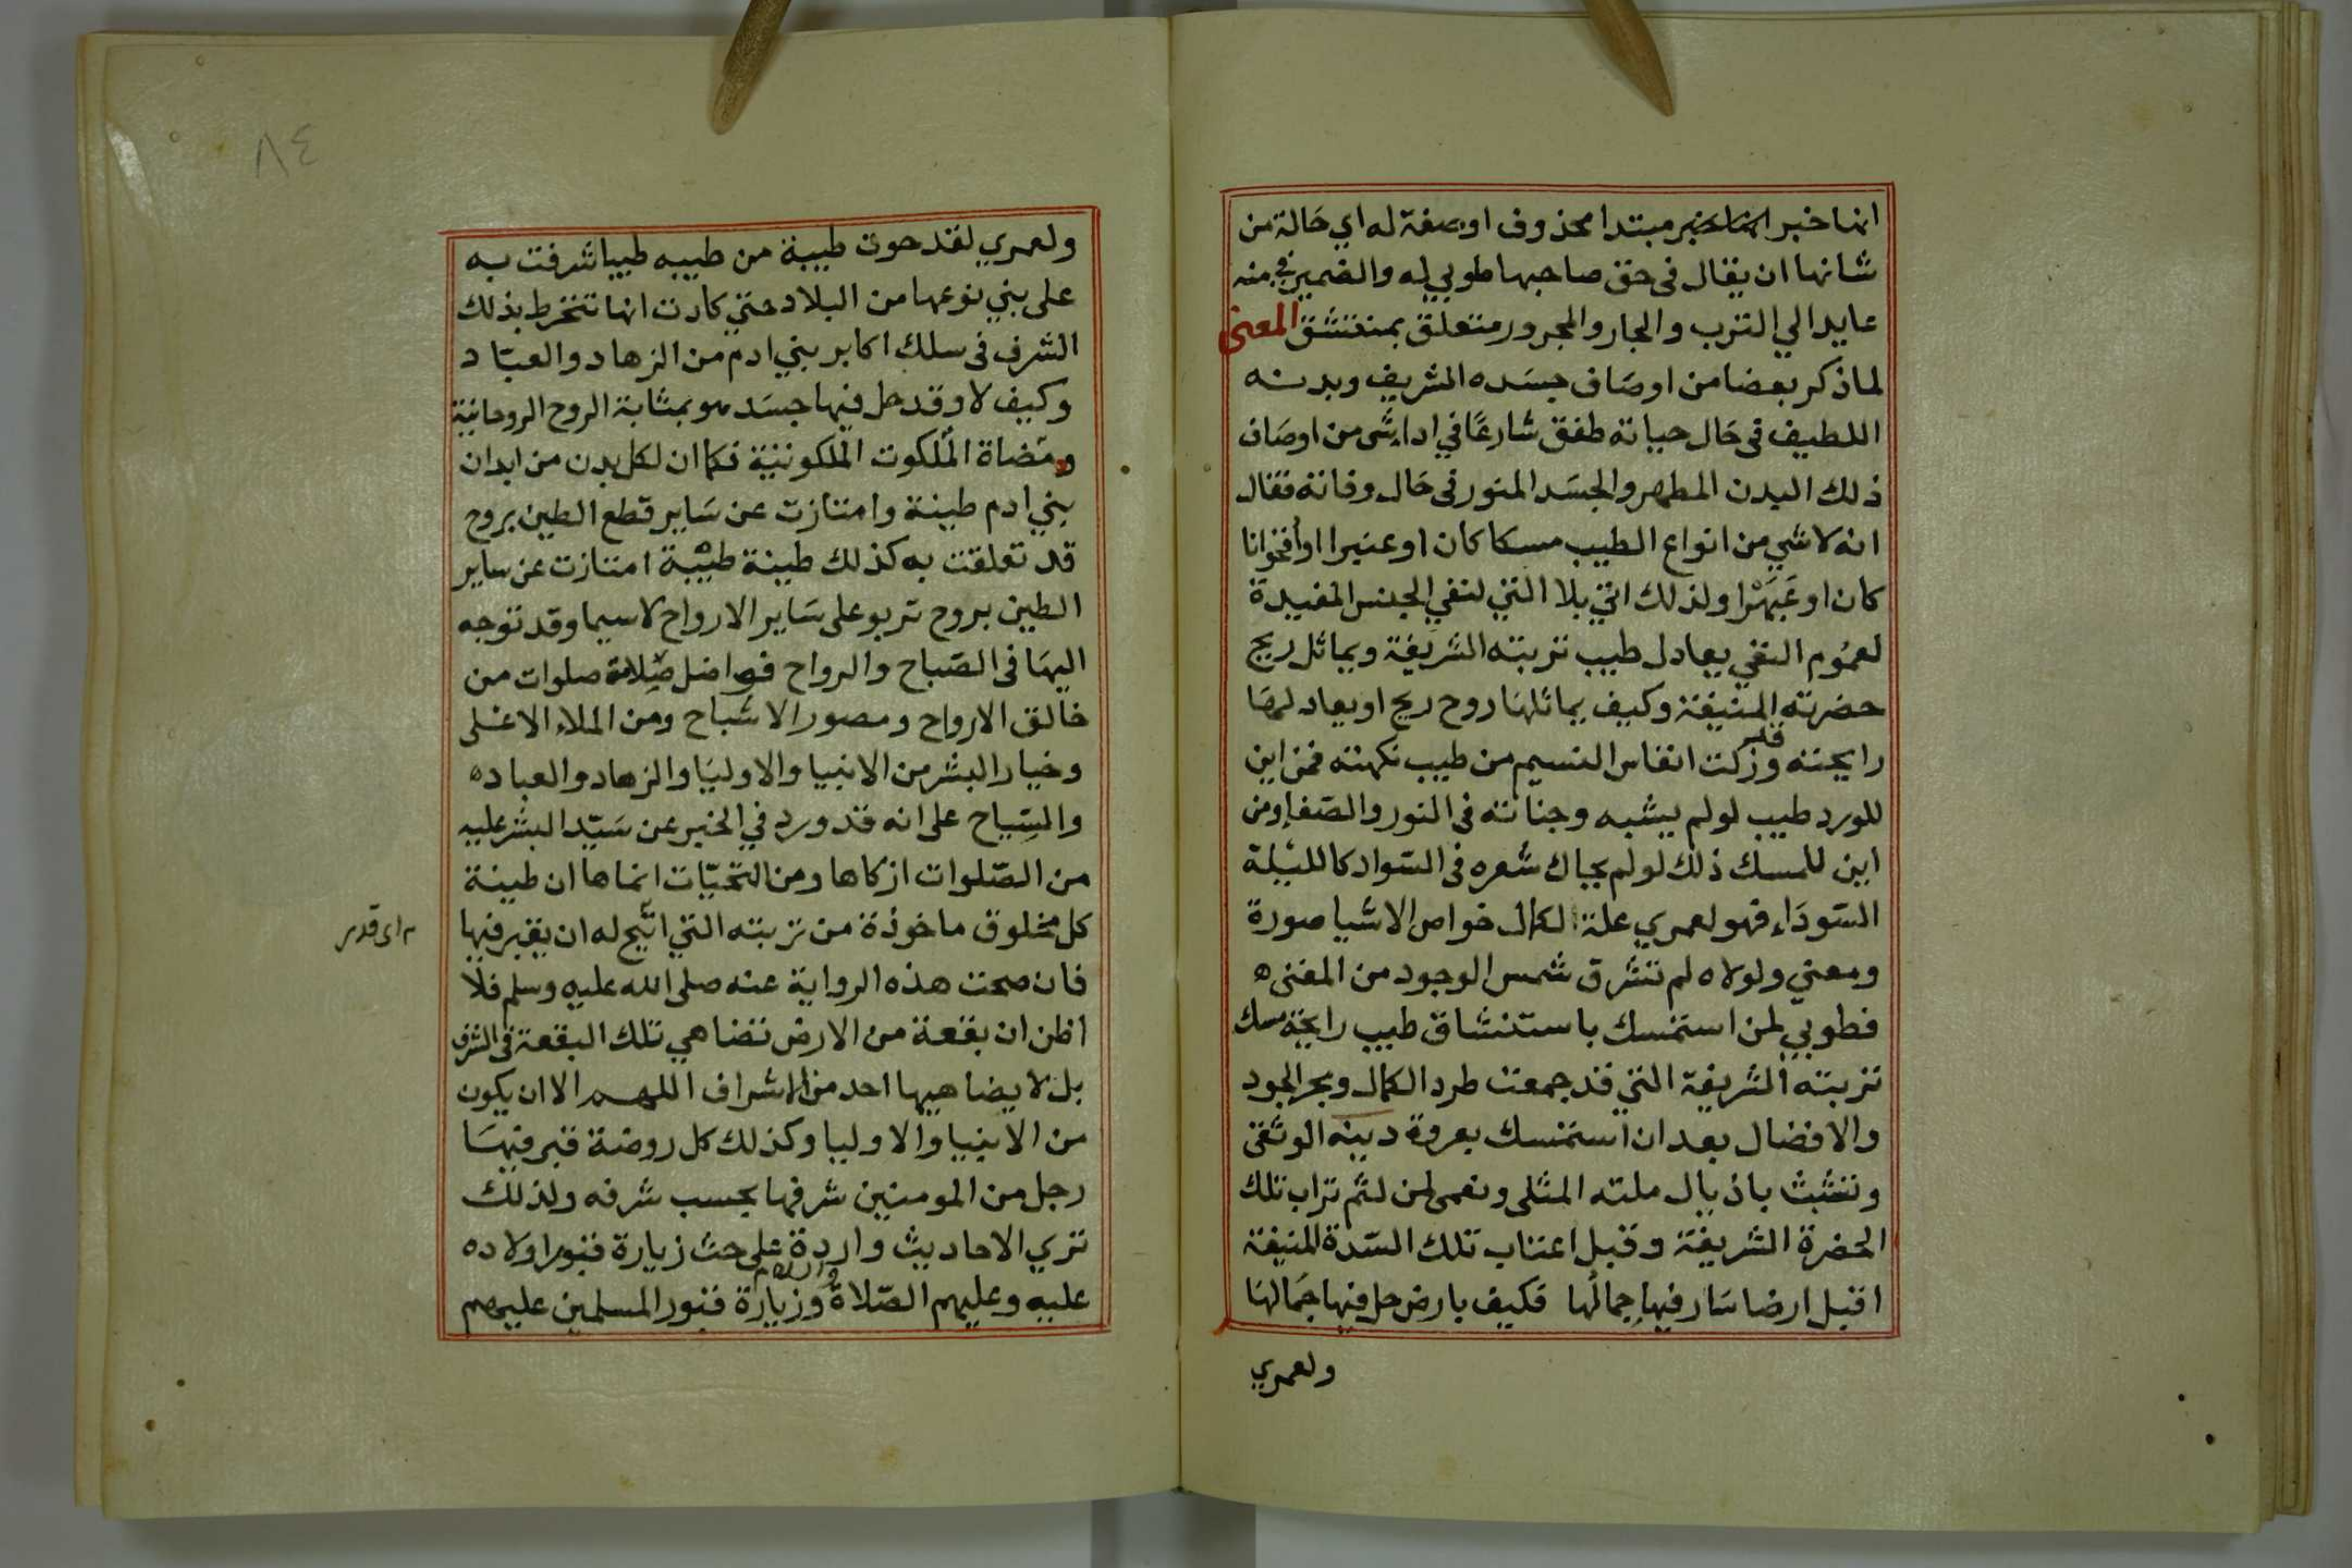 انها خبر انها خبر مبتدا محذوف او صفة له اي حَالة من
شانها ان يقال فى حق صاحبها طوبي له والضمير في منه
عايد الي الترب والجار والمجرور متعلق بمنتشق المعنى
لما ذكر بعضا من اوصَاف جسَده الشريف وبدنه
اللطيف فى حَال حياته طفق شارعًا في اداء شى من اوصَاف
ذلك البدن المطهر والجسَد المنور فى حَال وفاته فقال
انه لا شي من انواع الطيب مسكا كان او عنبرا او أقحوانا
كان او عَبَهْرا ولذلك اتي بلا التي لنفي الجنس المفيدة
لعمُوم النفي يعادل طيب تربته الشريفة ويماثل ريح
حضرته المنيفة وكيف يماثلها روح ريح او يعادلها
رايحته وقد زكت انفاس النسيم من طيب نكهته فمن اين
للورد طيب لو لم يشبه وجناته فى النور والصّفا ومن
اين للمسك ذلك لو لم يحاك شعره فى السّواد كالليلة
السّودَاء فهو لعمري علة لكمال خواص الاشيا صورة
ومعني ولولاه لم تشرق شمس الوجود من المغنى ه
فطوبي لمن استمسك باستنشاق طيب رايحة مسك
تربته الشريفة التي قد جمعت طرد الكمال وبحر الجود
والافضال بعد ان استمسك بعروة دينه الوثقى
وتشبث باذيال ملته المثلى ونعمى لمن لثم تراب تلك
الحضرة الشريفة وقبل اعتاب تلك السّدة المنيفة
اقبل ارضا سَار فيها جمالُها فكيف بارض حل فيها جَمَالها
ولعمري
٨٤
ولعمري لقد حوت طيبة من طيبه طيبا شرفت به
على بني نوعها من البلاد حتي كادت انها تنخرط بذلك
الشرف فى سلك اكابر بني ادم من الزهاد والعبّاد
وكيف لا وقد حل فيها جسَد هو بمثابة الروح الروحانية
ومضاة المُلكوت المَلكوتية فكما ان لكل بدن من ابدان
بني ادم طينة وامتازت عن سَاير قطع الطين بروح
قد تعلقت به كذلك طينة طيبة امتازت عن ساير
الطين بروح تربو على سَاير الارواح لا سيما وقد توجه
اليهَا فى الصّباح والرواح فواضل صلاة صلوات من
خالق الارواح ومصور الاشباح ومن الملاء الاعلى
وخيار البشر من الانبيا والاوليَا والزهاد والعباد ه
والسِّياح على انه قد ورد في الخبر عن سَيّد البشر عليه
من الصّلوات ازكاها ومن التحيّات انماها ان طينة
كل مخلوق ماخوذة من تربته التي اتيح له ان يقبر فيها
م اى قدر
فان صحت هذه الرواية عنه صلى الله عليه وسلم فلا
اظن ان بقعة من الارض تضاهي تلك البقعة فى الشرف
بل لا يضاهيها احد من الاشراف اللهم الا ان يكون
من الانبيا والاوليا وكذلك كل روضة قبر فيهَا
رجل من المومنين شرفها بحسب شرفه ولذلك
تري الاحاديث واردة على حث زيارة قبور اولاده
عليه وعليهم الصّلاة والسلام وزيارة قبور المسلمين عليهم